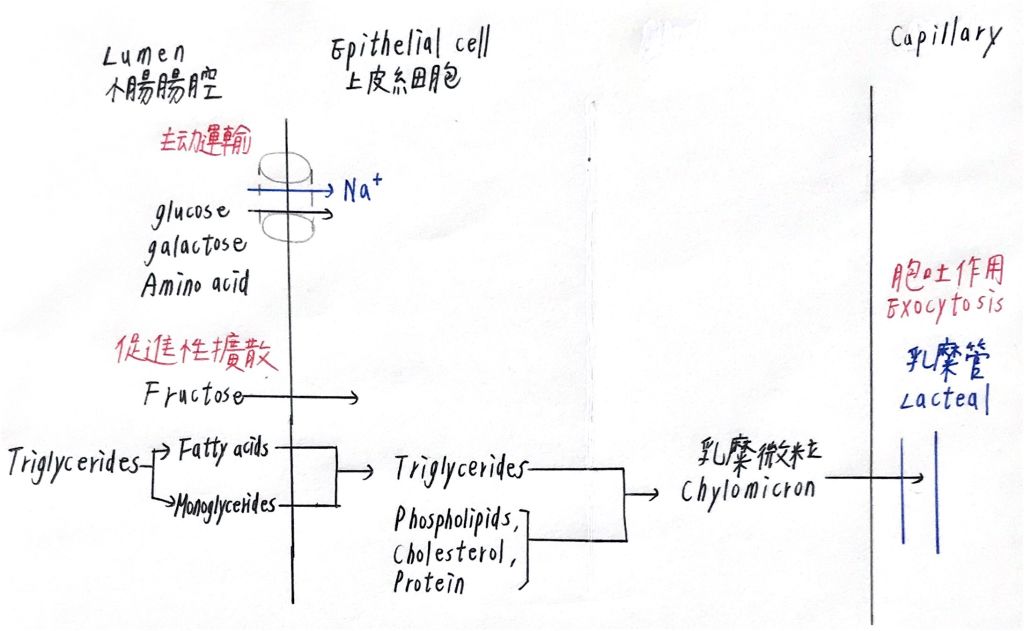 Lumen
小腸腸腔
Epithelial cell
上皮細胞
Capillary
主动運輸
Na+
glucose
galactose
Amino acid
促進性擴散
Fructose
Triglycerides
Fatty acids
Monoglycerides
Triglycerides
Phospholipids,
Cholesterol,
Protein
乳糜微粒
Chylomicron
胞吐作用
Exocytosis
乳糜管
Lacteal